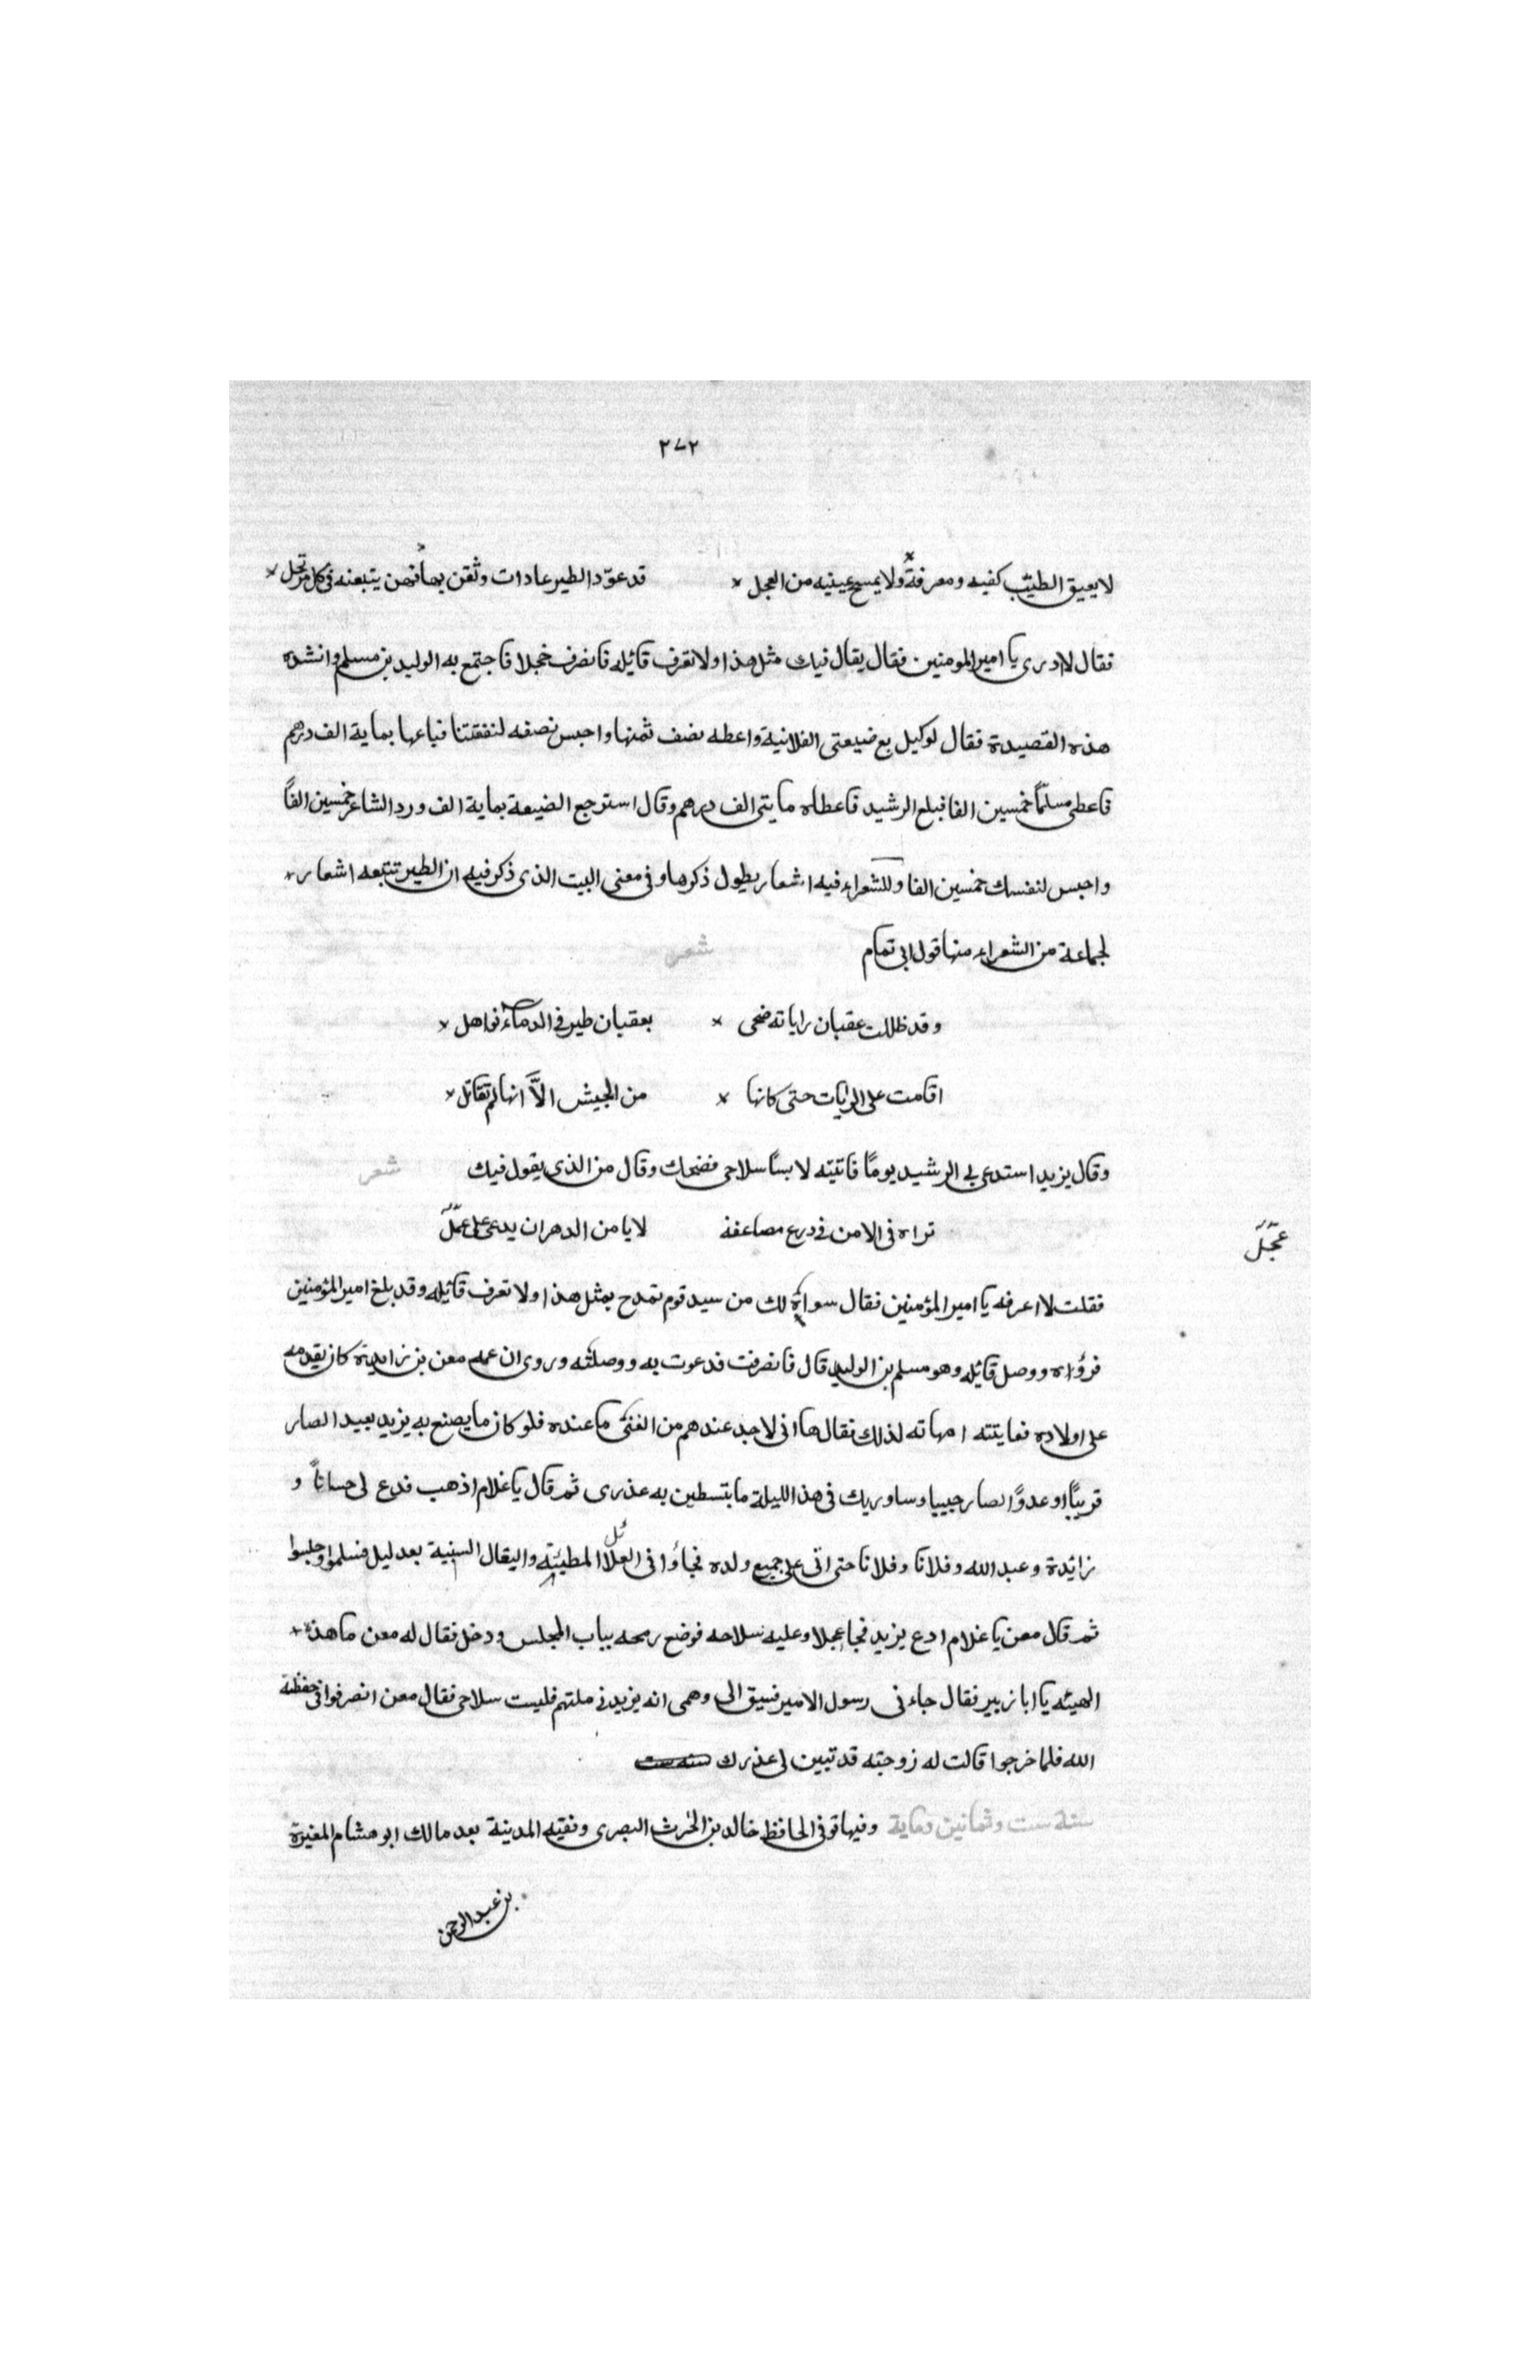 ٢٧٢
لا يعبق الطيب كفيه ومفرقة ولا يمسح عينيه من العجل قد عوّد الطير عادات وثقن بها فهن يتبعنه فى كل مرتحل
فقال لا ادرى يا امير المومنين فقال يقال فيك مثل هذا ولا تعرف قائله فانصرف خجلا فاجتمع به الوليد بن مسلم وانشده
هذه القصيدة فقال لوكيل بع ضيعتى الفلانية واعطه نصف ثمنها واحبس نصفه لنفقتنا فباعها بماية الف درهم
فاعطى مسلمًا خمسين الفا فبلغ الرشيد فاعطاه مايتى الف درهم وقال استرجع الضيعة بماية الف ورد الشاعر خمسين الفًا
واحبس لنفسك خمسين الفا وللشعراء فيه اشعار يطول ذكرها وفى معنى البيت الذى ذكر فيه ان الطير تتبعه اشعار
لجماعة من الشعراء منها قول ابى تمام شعر
وقد ظللت عقبان راياته ضحى بعقبان طير فى الدماء نواهل
اقامت على الرايات حتى كانها من الجيش الاّ انها لم تقاتل
وقال يزيد استدعى بى الرشيد يومًا فاتيته لابسًا سلاحى فضحك وقال من الذى يقول فيك شعر
تراه فى الامن فى درع مصاعفة لا يامن الدهر ان يدعى على عجَل
عجَل
فقلت لا اعرفه يا امير المؤمنين فقال سواة لك من سيد قوم تمدح بمثل هذا ولا تعرف قائله وقد بلغ امير المؤمنين
فرواه ووصل قائله وهو مسلم بن الوليد قال فانصرفت فدعوت به ووصلته وروى ان عمه معن بن زايدة كان يقدمه
على اولاده فعايتته امهاته لذلك فقال ها انى لا جد عندهم من الغنى ما عنده فلو كان ما يصنع به يزيد بعيد الصار
قريبًا او عدوًّا لصار حبيبا وساوريك فى هذا الليلة ما بتسطين به عذرى ثم قال يا غلام اذهب فدع لى حسانًا و
زائدة وعبد الله وفلانا وفلانا حتى اتى على جميع ولده فجاؤا فى الغلائل المطيبة والبقال السنية بعد ليل فسلموا وجلسوا
ثم قال معن يا غلام ادع يزيد فجا عجلا وعليه سلاحه فوضع رمحه بباب المجلس ودخل فقال له معن ما هذه
الهيئه يا ابا زبير فقال جاءنى رسول الامير فسبق الى وهمى انه يزيدنى ملتهم فلبست سلاحى فقال معن انصرفوا فى حفظة
الله فلما خرجوا قالت له زوجته قد تبين لى عذرك سنه ست
سنة ست وثمانين وماية وفيها توفى الحافظ خالد بن الحرث البصرى وفقيه المدينة بعد مالك ابو هشام المغيرة
بن عبد الرحمن